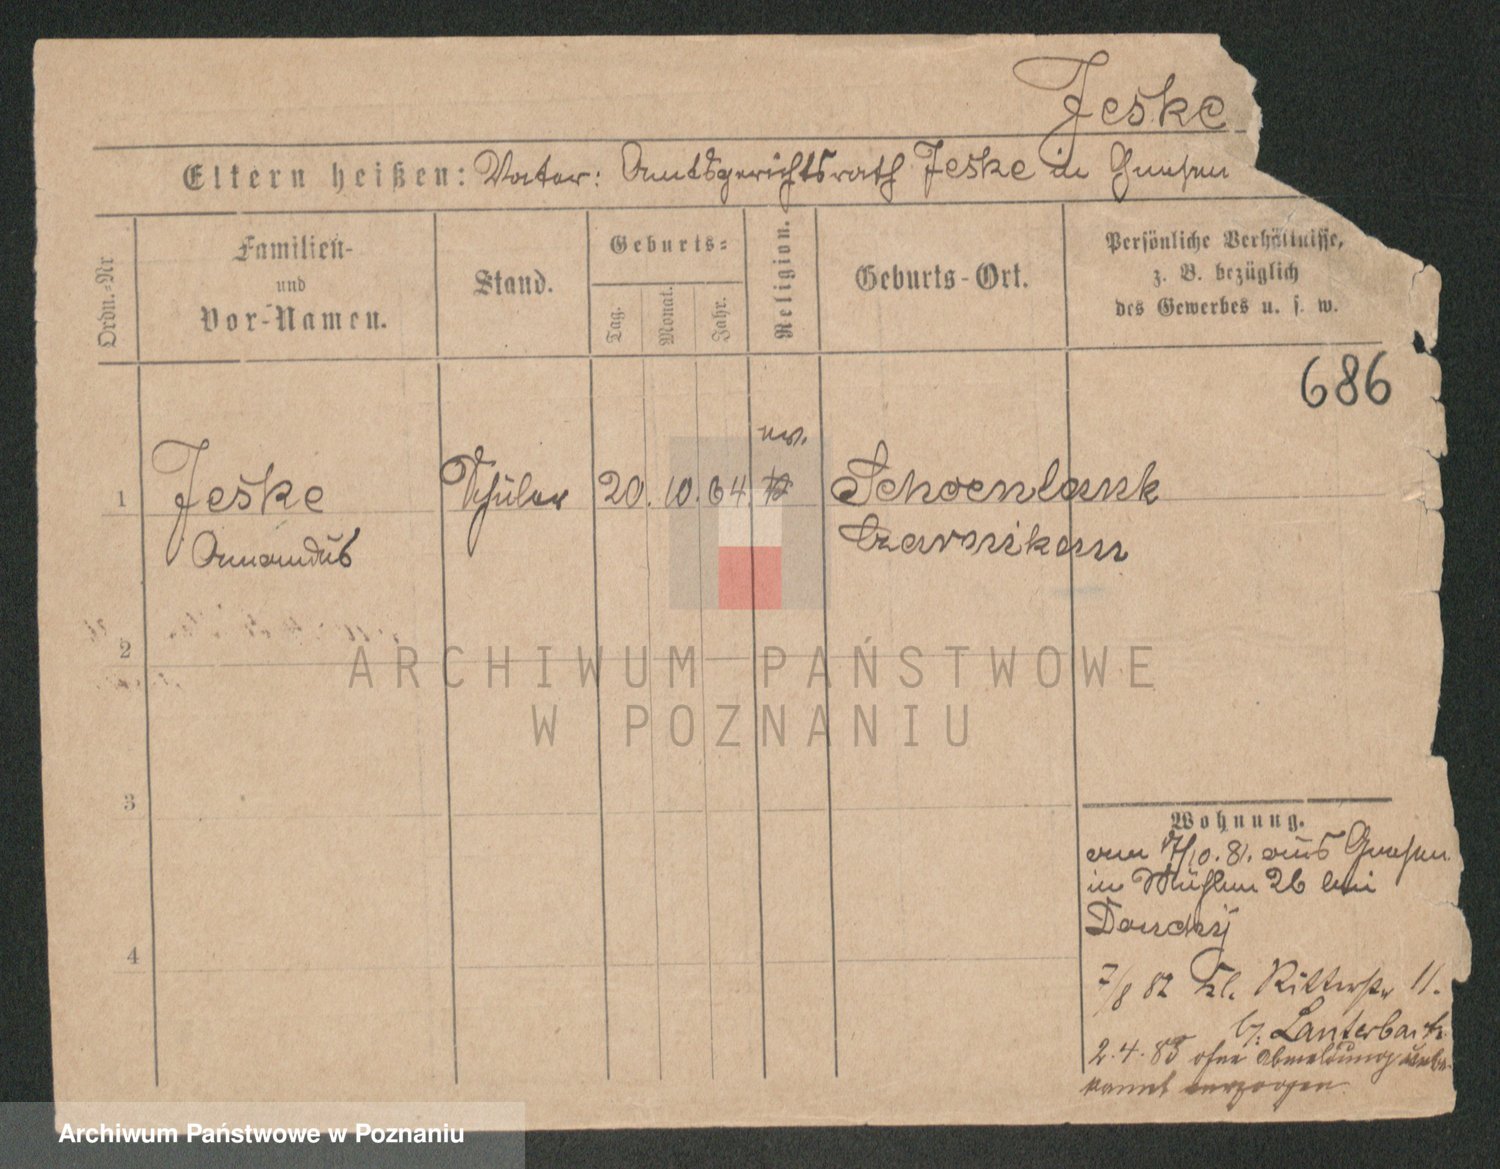 Jeske
Eltern heißen: Vater: Amtsgerichtsrath Jeske in Gnesen
Ordn.-Nr
Familien-
und
Vor-Namen.
Stand.
Geburts-
Tag.
Monat.
Jahr.
Religion.
Geburts-Ort.
Persönliche Verhältnisse,
z. B. bezüglich
des Gewerbes u. s. w.
686
ev.
1 Jeske Schüler 20. 10. 64. Schoenlank
Amandus Czarnikau
2
ARCHIWUM PAŃSTWOWE
W POZNANIU
3
Wohnung.
am 17/10.81. aus Gnesen
in Mühlen 26 bei
4
7/8 82 Kl. Ritterstr 11.
b. Lauterbach
2.4.83 ohne Abmeldung unbe-
kannt verzogen
Archiwum Państwowe w Poznaniu